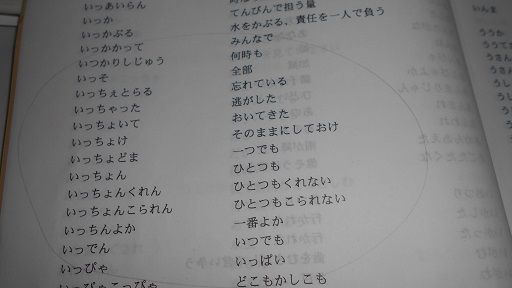 いっあいらん
いっか　てんびんで担う量
いっかぶる　水をかぶる、責任を一人で負う
いっかかって　みんなで
いつかりしじゅう　何時も
いっそ　全部
いっちぇとらる　忘れている
いっちゃった　逃がした
いっちょいて　おいてきた
いっちょけ　そのままにしておけ
いっちょどま　一つでも
いっちょん　ひとつも
いっちょんくれん　ひとつもくれない
いっちょんこられん　ひとつもこられない
いっちんよか　一番よか
いっでん　いつでも
いっぴゃ　いっぱい
いっぴゃこっぴゃ　どこもかしこも
いんま